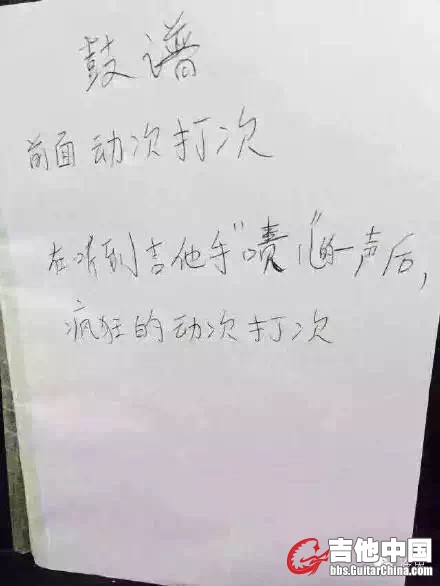 鼓谱
前面动次打次
在听到吉他手"啧儿"的一声后，
疯狂的动次打次
吉他中国
bbs.GuitarChina.com